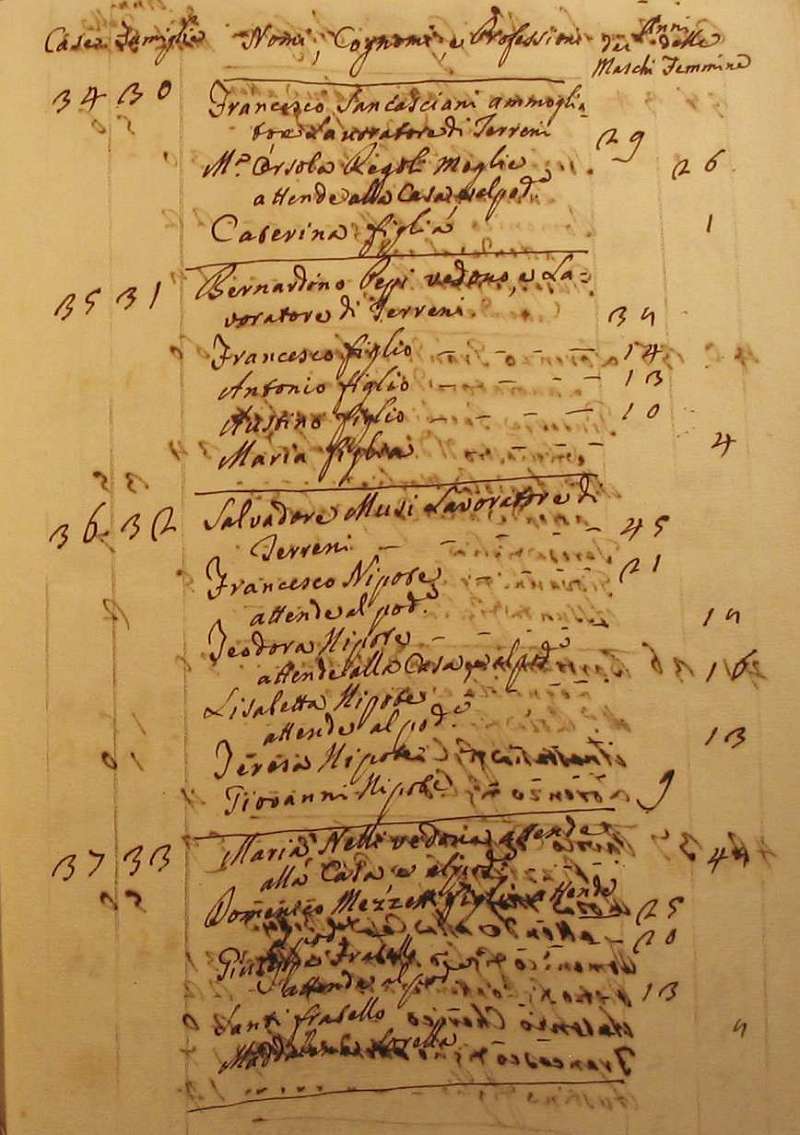 Case Famiglie Nomi, Cognomi, e Professioni Anni
dei delle
Maschi Femmine
34 30 Francesco Sancasciani ammoglia=
to e Lavoratore di Terreni 29
M.ª Orsola Rigoli Moglie 26
attende alla Casa e al pod.e
Caterina figlia 1
35 31 Bernardino Pepi vedovo, e La=
voratore di Terreni 39
Francesco figlio 14
Antonio figlio 13
Austino figlio 10
Maria figlia 4
36 32 Salvadore Musi Lavoratore di
Terreni 45
Francesco Nipote 21
attende al pod.e
Teodora Nipote 19
attende alla Casa e al pod.e
Lisabetta Nipote 16
attende al pod.e
Teresa Nipote 13
Giovanni Nipote 9
37 33 Maria Netti vedova attende 49
alla Casa e al pod.e
Domenico figlio attende 25
Fratello 20
attende al pod.e
Santi fratello 13
Maddalena Sorella 9